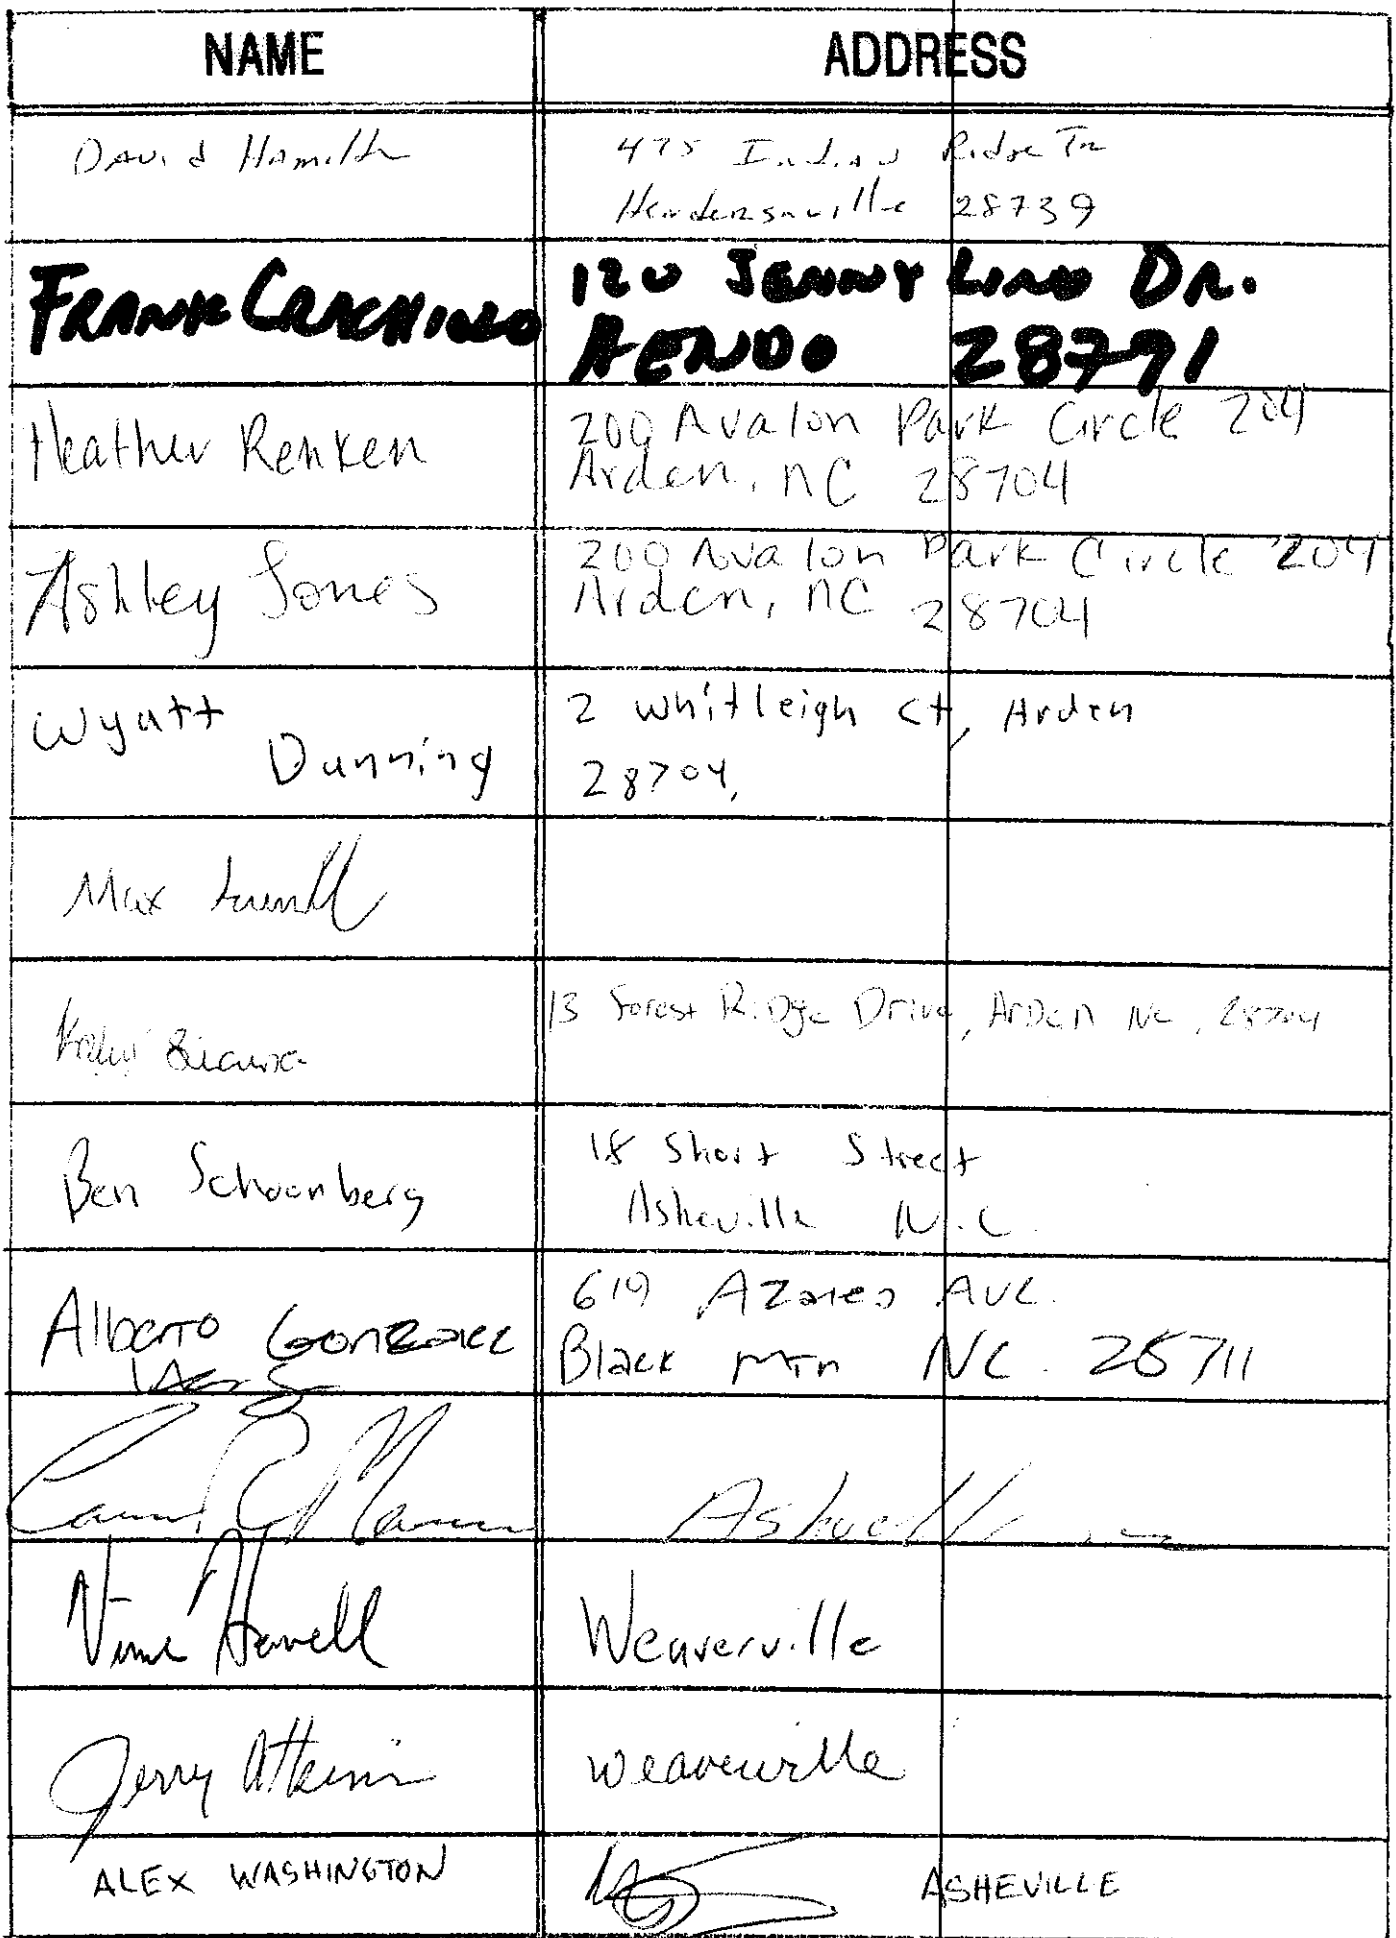 NAME ADDRESS
David Hamilton 475 Indian Ridge Tr
Hendersonville 28739
FRANK CRACHIOLO 120 JENNY LIND DR.
HENDO 28791
Heather Renken 200 Avalon Park Circle 204
Arden, NC 28704
Ashley Jones 200 Avalon Park Circle 204
Arden, NC 28704
Wyatt 2 Whitleigh ct, Arden
Dunning 28704,
Max
13 Forest Ridge Drive, Arden NC, 28704
Ben Schoonberg 18 Short Street
Asheville N.C.
Alberto Gonzalez 619 Azores Ave.
Black Mtn NC. 28711
Asheville
Howell Weaverville
Jerry Atkins weaverville
ALEX WASHINGTON ASHEVILLE